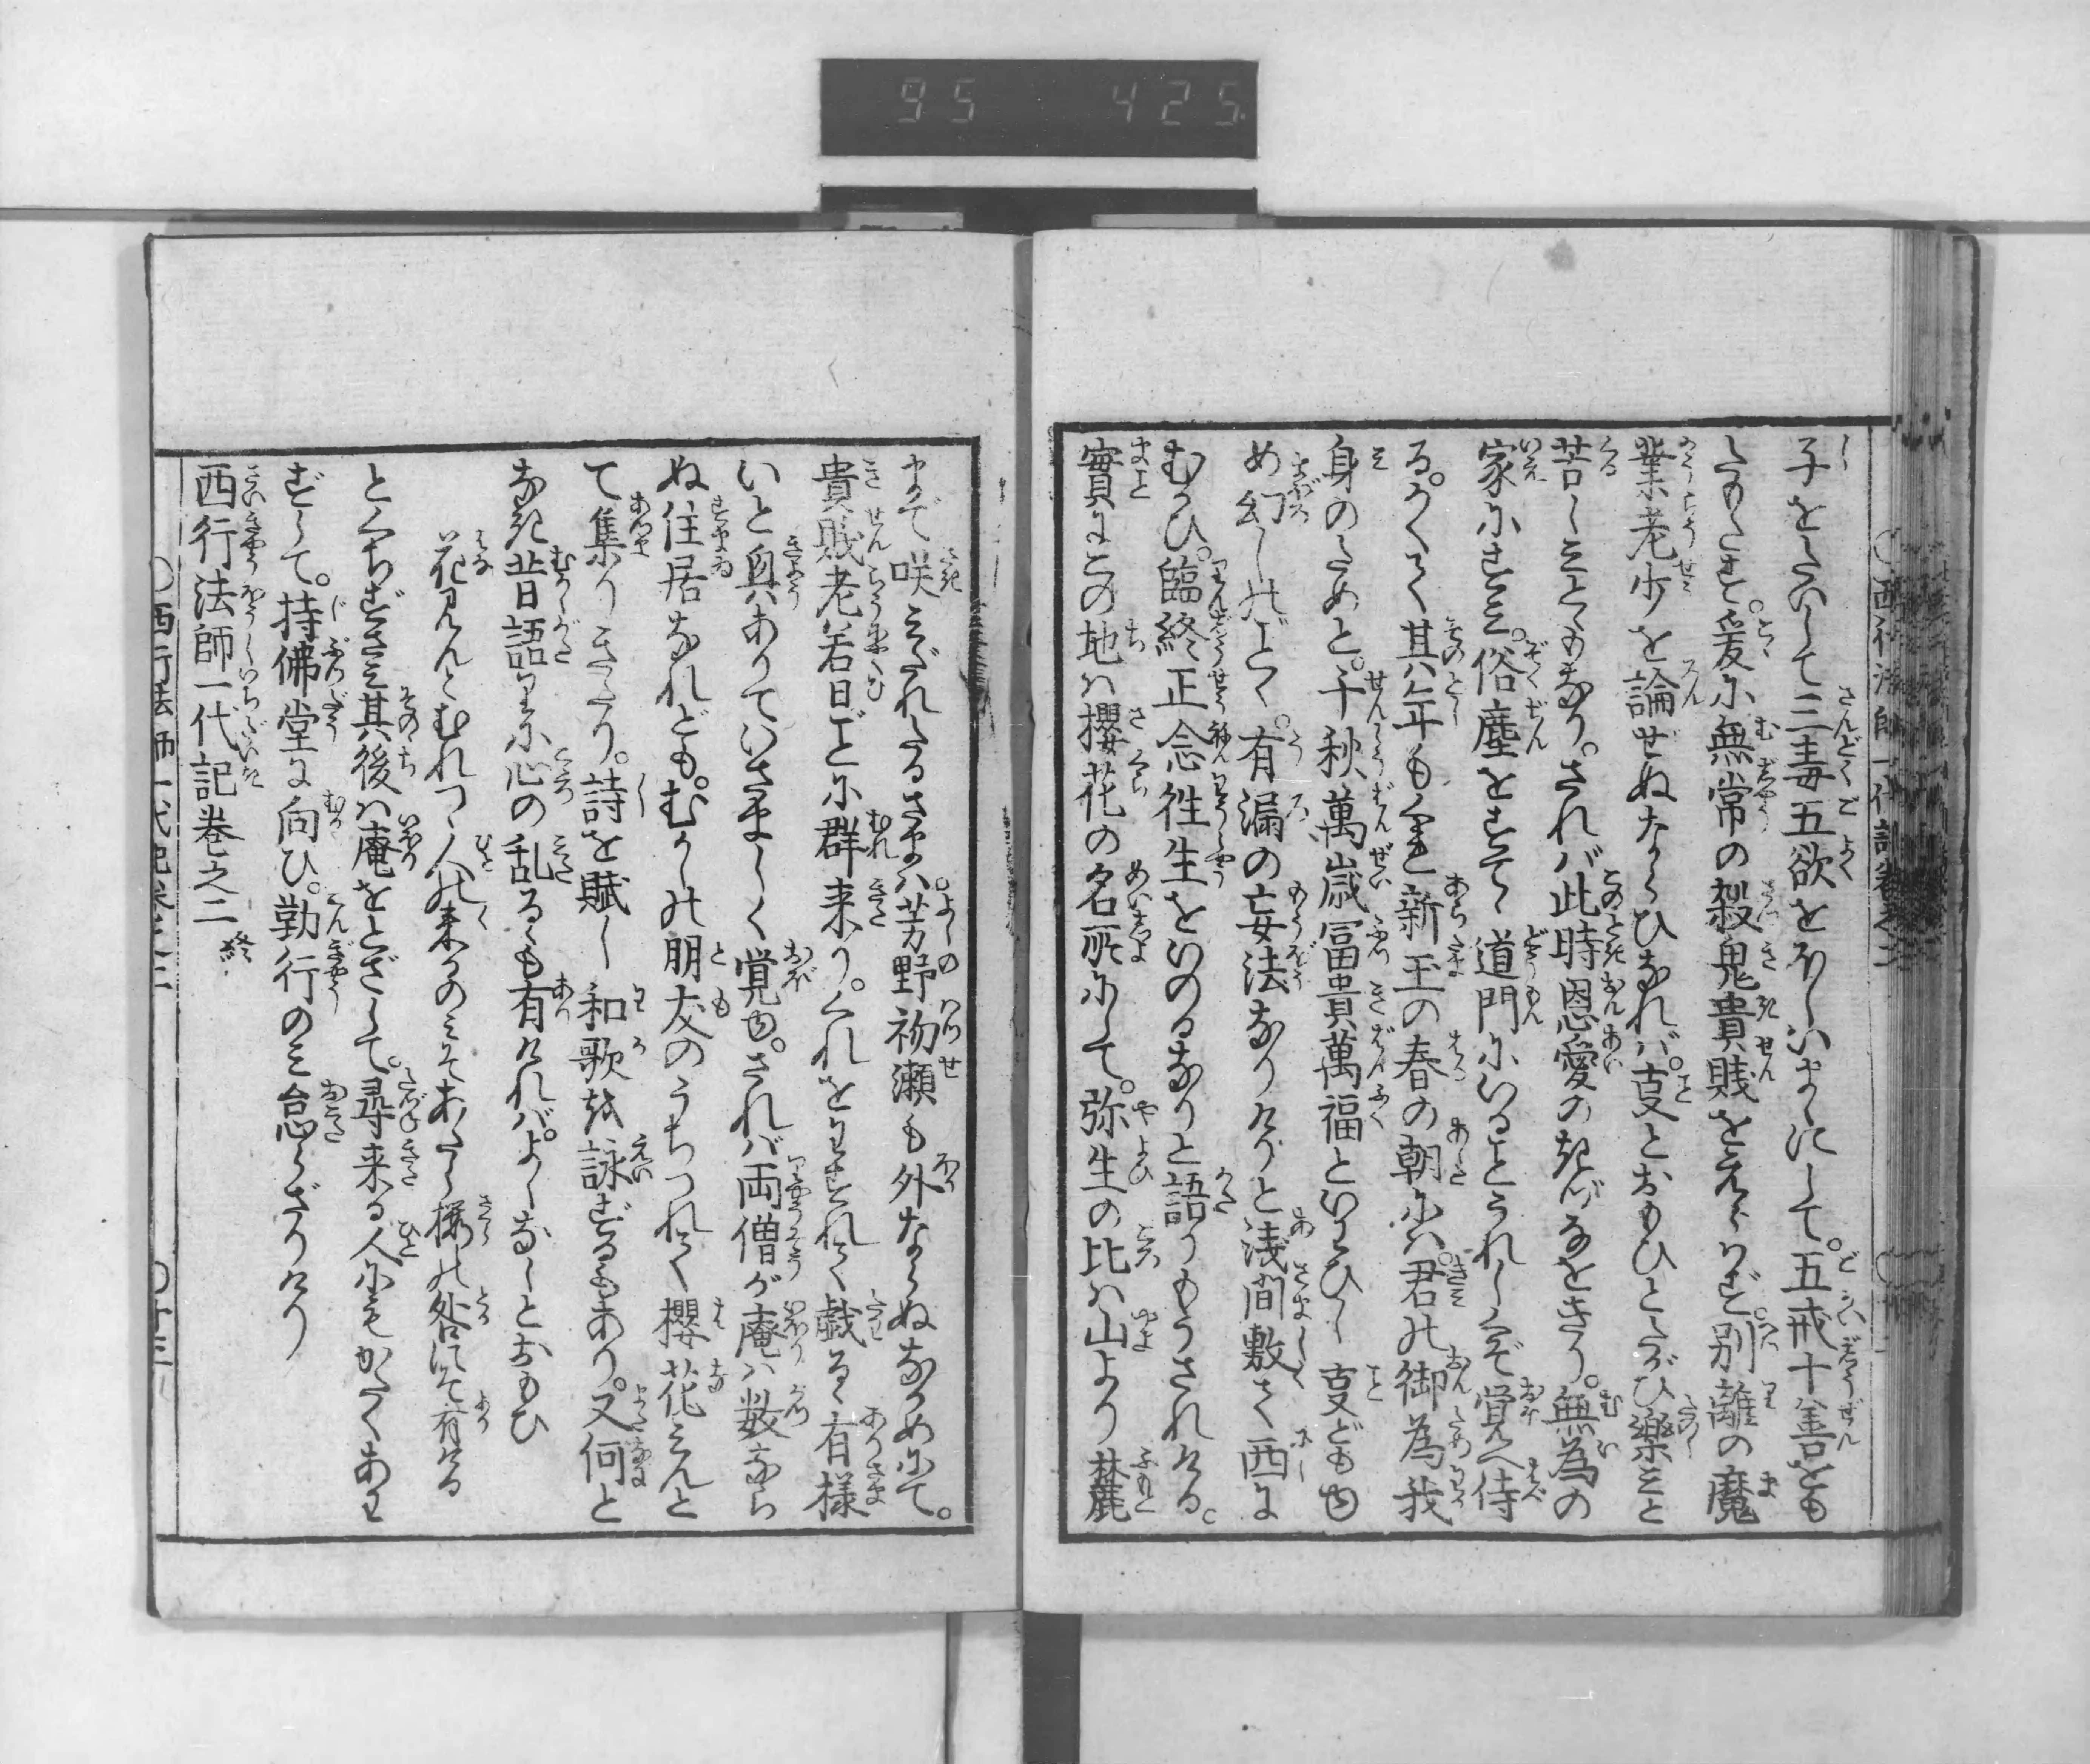 95 425
子をたいして三毒五欲をほしいまゝにして。五戒十善をも
たもたず。爰に無常の殺鬼貴賎をえらばず別離の魔
業老少を論せぬならひなれば。夏とおもひとたび楽みと
苦しみとゝもなり。されば此時恩愛のきづなをきり。無為の
家にすみ。俗塵をすてゝ道門にいることうれしくぞ覚へ侍
る。かくて其年もくれ新玉の春の朝には。君の御為我
身のためと。千秋萬歳冨貴萬福といわひし叓ども由
め幻しのごとく。有漏の妄法なりけりと浅間敷て西に
むかひ。臨終正念徃生をいのるなりと語りもうされける。
實にこの地は櫻花の名所にして。弥生の比は山より麓
まで咲みだれたるさまは。芳野初瀬も外ならぬながめにて。
貴賎老若日ごとに群来り。くれをわすれて戯るゝ有様
いと興ありていさましく覚ゆ。されば両僧が庵は数なら
ぬ住居なれども。むかしの朋友のうちつれて櫻花みんと
て集りきたり。詩を賦し和歌を詠ずるもあり。又何と
なき昔語りに心の乱るゝも有ければ。よしなしとおもひ
花見んとむれつゝ人の来るのみぞあたら桜の咎にぞ有ける
とくちずさみ其後は庵をとざして。尋来る人にもかたくあわ
ずして。持佛堂に向ひ。勤行のみ怠らざりけり
西行法師一代記巻之二 終
〇西行法師一代記巻之二 〇十三